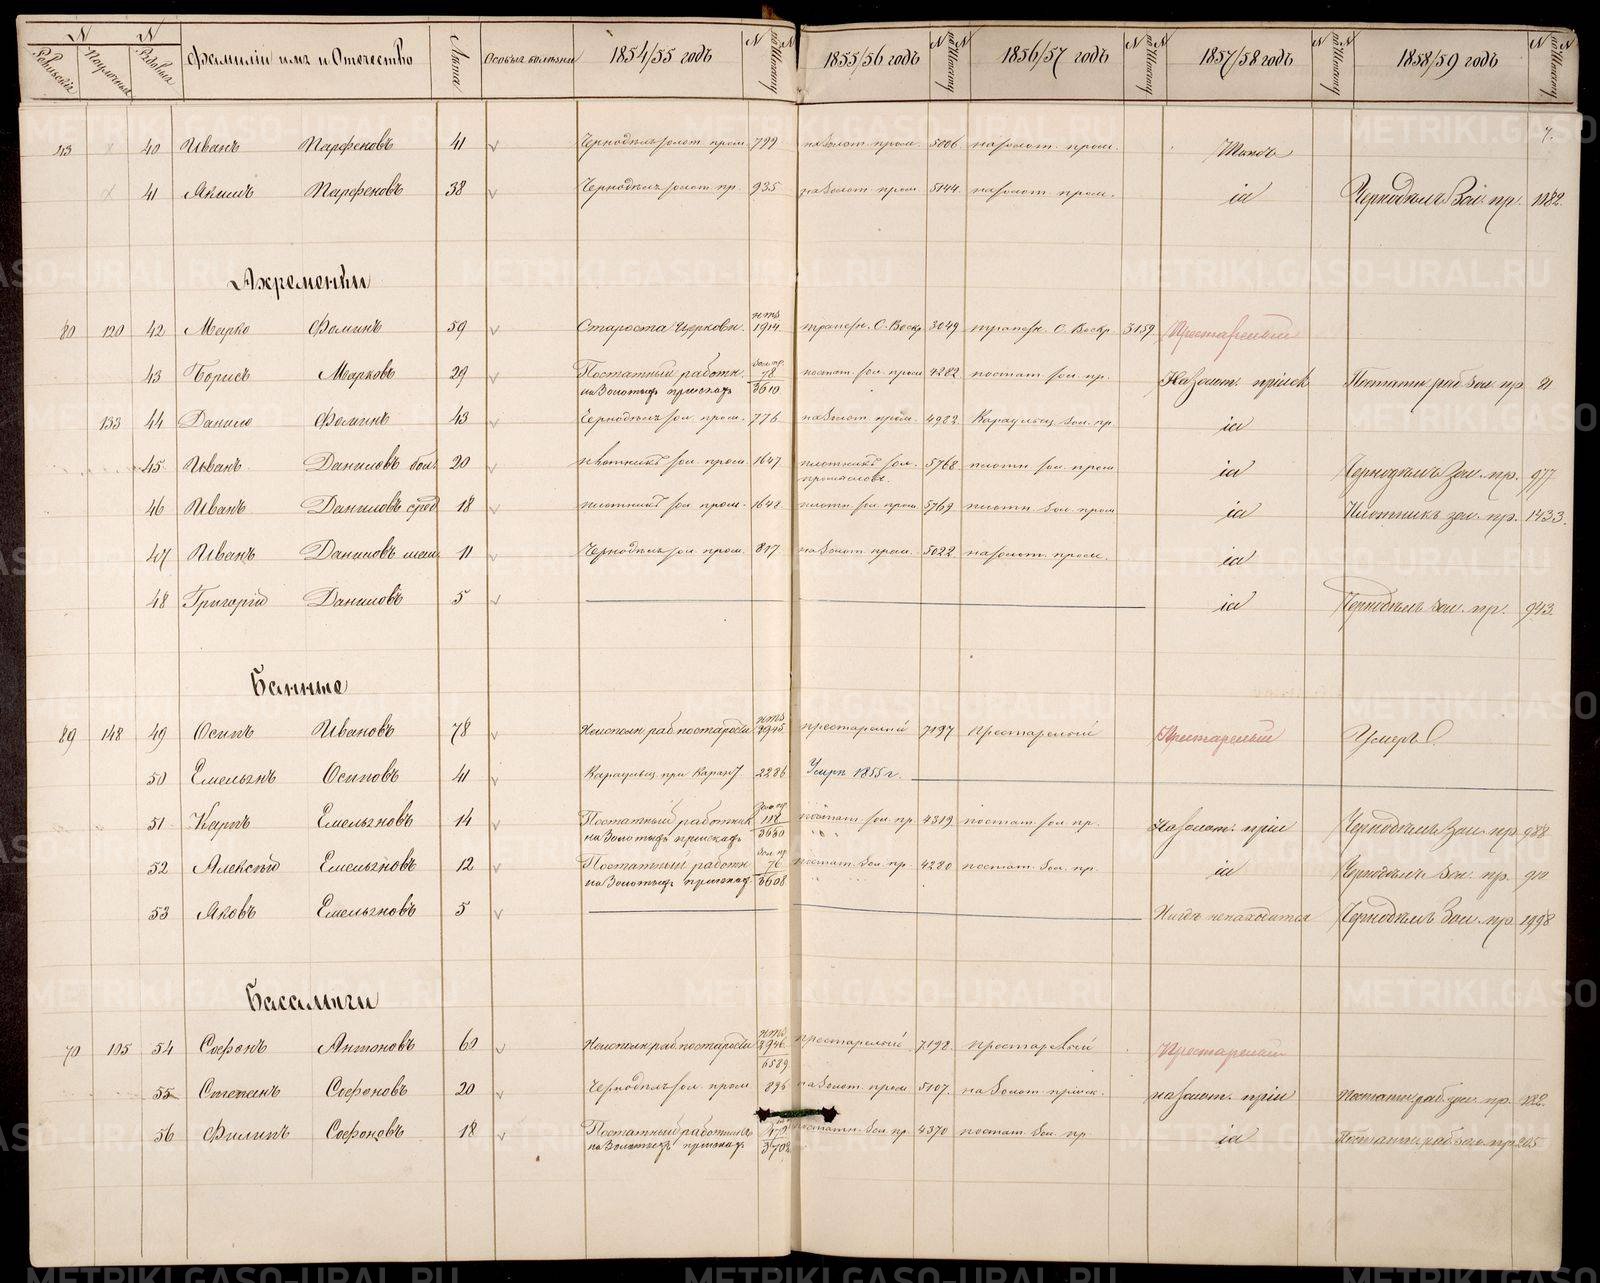 N N
Ревизскій Наличный Рядовыя Фамиліи имъ и Отчество Лѣта Особыя болѣзни 1854/55 годъ N 1855/56 годъ N 1856/57 годъ N 1857/58 годъ N 1858/59 годъ N
7.
43 40 Иванъ Парфеновъ 41 Чернодѣлъ золот. пром. 799 на золот. пром. 5006 на золот. пром.
41 Якимъ Парфеновъ 38 Чернодѣлъ золот. пр. 935 на золот. пром 5144 на золот. пром. id Чернодѣлъ Зол. пр. 1182.
Ахременки
80 120 42 Марко Фоминъ 59 Староста Церковн. 1914 трапезн. С. Воскр. 3049 трапезн. С. Воскр. 3159 Престарелый
43 Борисъ Марковъ 29 Постатный работн. на Золотыхъ пріискахъ Зол. пр. 78 3610 постат. зол. пром 4282 постат. зол. пр. На золот. пріиск Постатн. раб. зол. пр. 81
133 44 Данило Фоминъ 43 Чернодѣлъ зол. пром. 776 на золот. пром. 4982 Караульщ. зол. пр. id
45 Иванъ Даниловъ бол. 20 плотникъ зол. пром. 1647 плотникъ зол. промысловъ. 5768 плотн. зол. пром id Чернодѣлъ Зол. пр. 977
46 Иванъ Даниловъ сред. 18 плотникъ зол. пром. 1648 плотн. зол. пром. 5769 плотн. зол. пром id Плотникъ зол. пр. 1433.
47 Иванъ Даниловъ мен. 11 Чернодѣлъ зол. пром. 817 на золот. пром. 5022 на золот. пром. id
48 Григорій Даниловъ 5 id Чернодѣлъ зол. пр. 943.
Банные
89 148 49 Осипъ Ивановъ 78 Неиспол. раб. по старости 2945 престарелый 7197 Престарелый Престарелый Умеръ
50 Емельянъ Осиповъ 41 Караульщ. при Карант 2286 Умеръ 1855 г.
51 Карпъ Емельяновъ 14 Постатный работник на Золотыхъ пріискахъ Зол. пр. 118 3650 постат. зол. пр. 4319 постат. зол. пр. На золот. пріи Чернодѣлъ Зол. пр. 988
52 Алексѣй Емельяновъ 12 Постатный работн на Золотыхъ пріискахъ Зол. пр. 76 3608 постат. Зол. пр. 4280 постат. Зол. пр. id Чернодѣлъ Зол. пр. 910
53 Яковъ Емельяновъ 5 Нигдѣ не находится Чернодѣлъ Зол. пр. 1998
Басалыги
70 105 54 Софонъ Антоновъ 60 Неиспол. раб. по старости 2946 6589 престарелый 7198. престарелый Престарелый
55 Степанъ Софоновъ 20 Чернодѣлъ зол. пром 896 на Золот. пром 5107. на Золот. пріиск. на золот. пріи Постатн. раб. зол. пр. 182.
56 Филипъ Софоновъ 18 Постатный работникъ на Золотыхъ пріискахъ 3702 постатн. Зол. пр. 4370 постат. Зол. пр id Постатн. раб. зол. пр. 205
METRIKI.GASO-URAL.RU